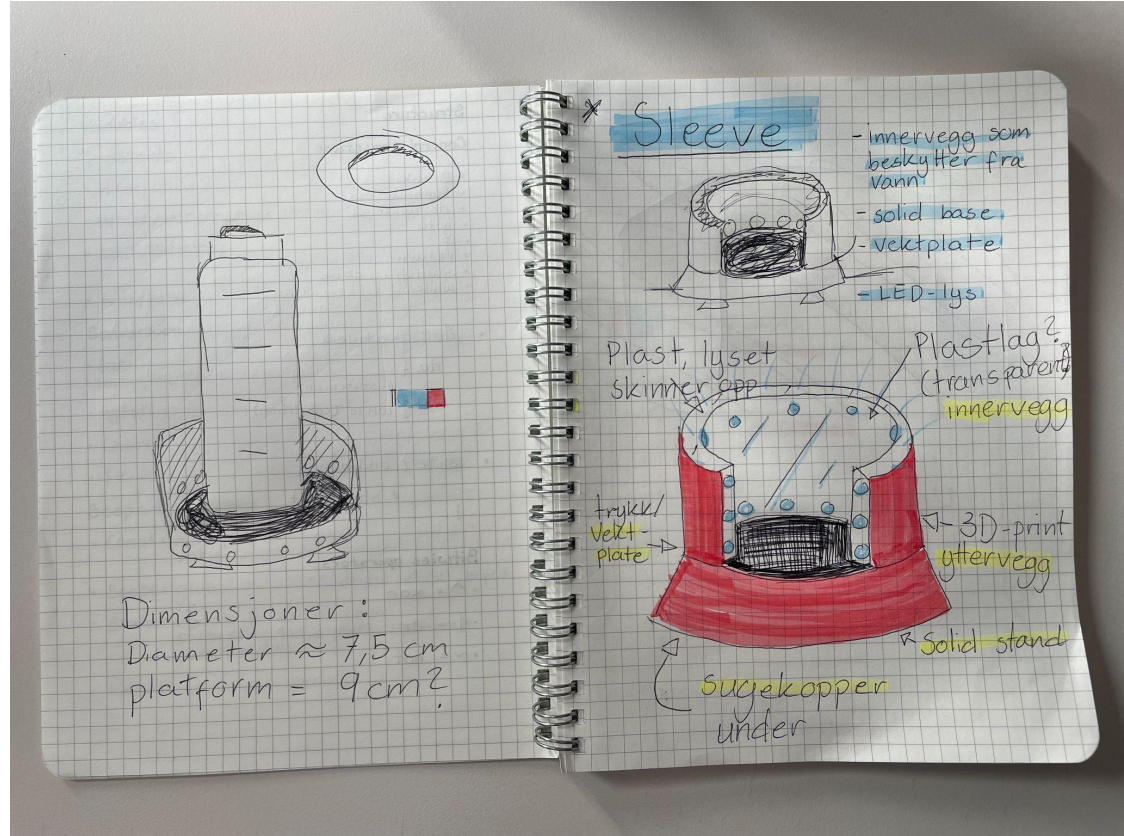 Dimensjoner:
Diameter ≈ 7,5 cm
platform = 9 cm?
* Sleeve
- innervegg som
beskytter fra
vann
- solid base
- vektplate
- LED-lys
Plast, lyset
skinner opp
Plastlag?
(transparent)
innervegg
trykk/
vekt-
plate
- 3D-print
yttervegg
Solid stand
sugekopper
under